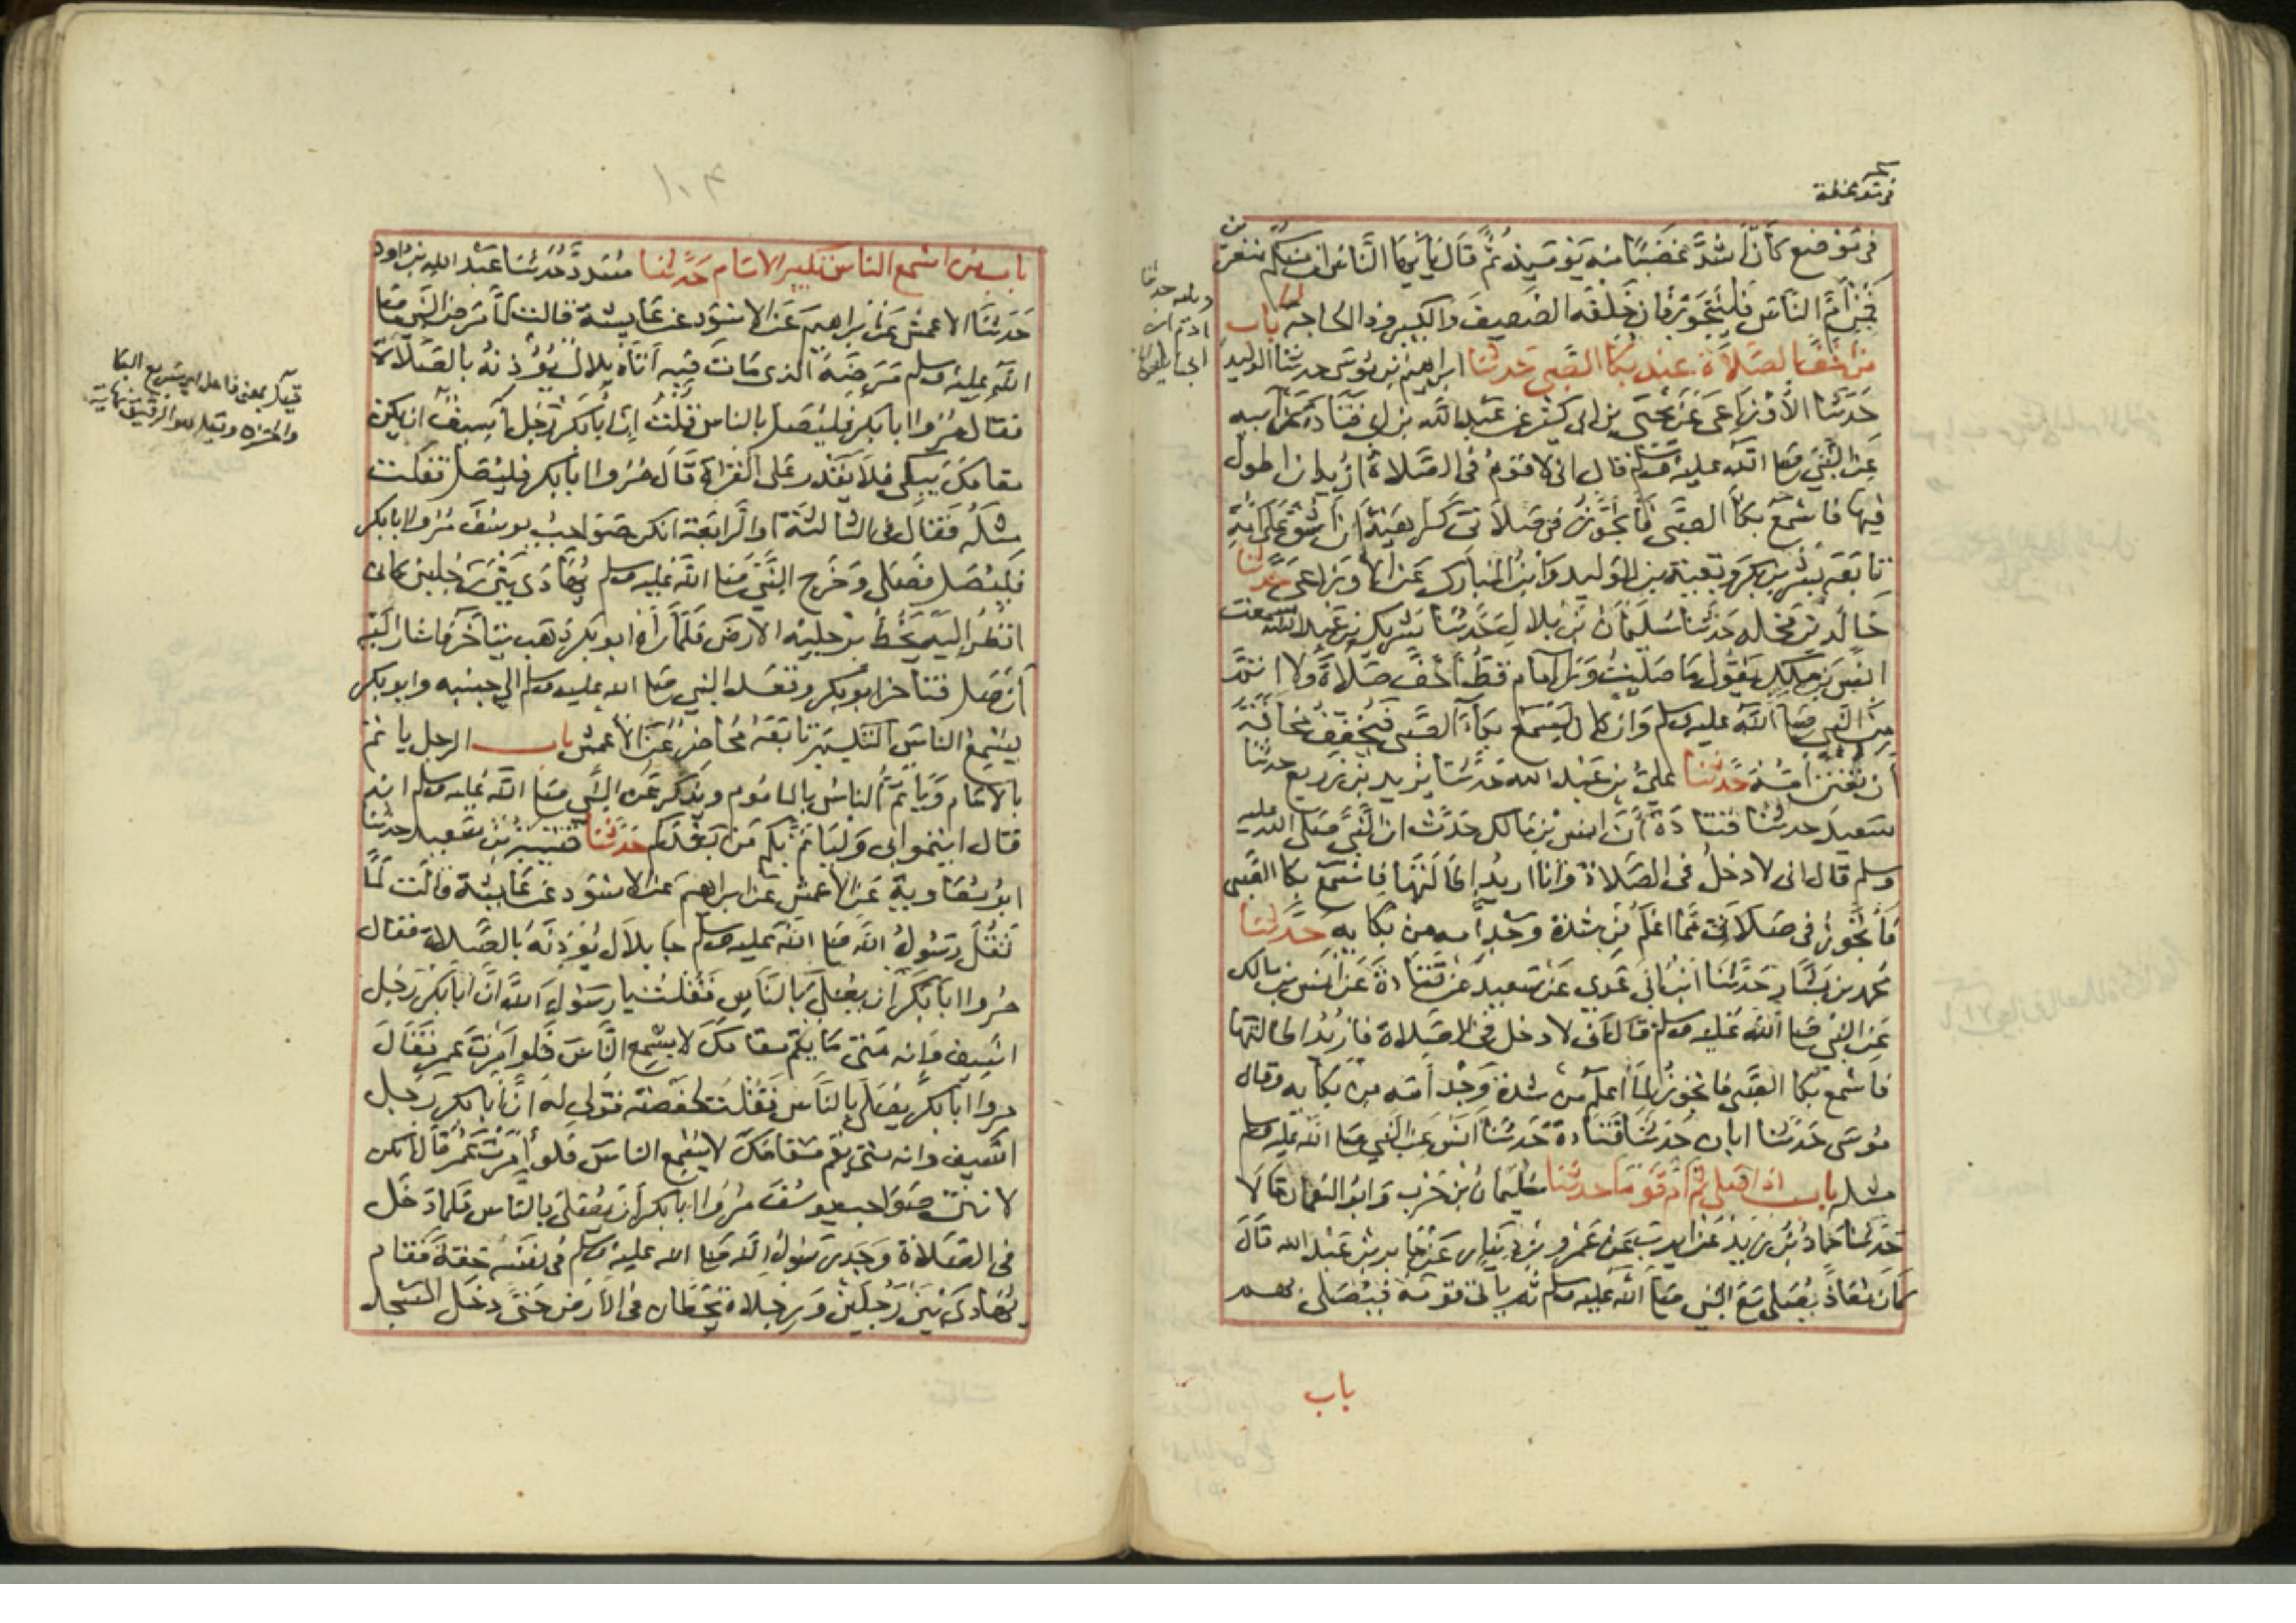 في موضع كان اشد غضبا منه يومئذ ثم قال يا ايها الناس ان منكم منفرين
فمن ام الناس فليتجوز فان خلفه الضعيف والكبير وذا الحاجة باب
من اخف الصلاة عند بكا الصبي حدثنا ابراهيم بن موسى حدثنا الوليد
حدثنا الأوزاعي عن يحيى بن ابي كثير عن عبد الله بن ابي قتادة عن ابيه
عن النبي صلى الله عليه وسلم قال اني لاقوم في الصلاة اريد ان اطول
فيها فاسمع بكأ الصبي فاتجوز في صلاتي كراهية ان اشق على امه
تابعه بشر بن بكر وبقية بن الوليد وابن المبارك عن الأوزاعي حدثنا
خالد بن مخلد حدثنا سليمان بن بلال حدثنا شريك بن عبد الله سمعت
انس بن مالك يقول ما صليت ورا امام قط أخف صلاة ولا اتم
من النبي صلى الله عليه وسلم وان كان ليسمع بكأ الصبي فيخفف مخافة
أن تفتن أمه حدثنا علي بن عبد الله حدثنا يزيد بن زريع حدثنا
سعيد حدثنا قتادة أن انس بن مالك حدث ان النبي صلى الله عليه
وسلم قال اني لادخل في الصلاة وانا اريد اطالتها فاسمع بكا الصبي
فأتجوز في صلاتي مما اعلم من شدة وجد امه من بكايه حدثنا
محمد بن بشار حدثنا ابن أبي عدي عن سعيد عن قتادة عن انس بن مالك
عن النبي صلى الله عليه وسلم قال اني لادخل في الصلاة فاريد اطالتها
فاسمع بكا الصبي فاتجوز لما اعلم من شدة وجد أمه من بكايه وقال
موسى حدثنا ابان حدثنا قتادة حدثنا انس عن النبي صلى الله عليه وسلم
مثله باب اذا صلى ثم ام قوما حدثنا سليمان بن حرب وابو النعمان قالا
حدثنا حماد بن زيد عن ايوب عن عمرو بن دينار عن جابر بن عبد الله قال
كان معاذ يصلي مع النبي صلى الله عليه وسلم ثم يأتي قومه فيصلي بهم
باب
١٠٣
باب من اسمع الناس تكبير الامام حدثنا مسدد حدثنا عبد الله بن داود
حدثنا الاعمش عن ابراهيم عن الاسود عن عايشة قالت لما مرض النبي صلى
الله عليه وسلم مرضه الذي مات فيه أتاه بلال يؤذنه بالصلاة
فقال مروا ابا بكر فليصل بالناس قلت ان أبا بكر رجل أسيف ان يقم
مقامك يبكي فلا يقدر على القراة قال مروا ابا بكر فليصل فقلت
مثله فقال في الثالثة او الرابعة انكن صواحب يوسف مروا ابا بكر
فليصل فصلى وخرج النبي صلى الله عليه وسلم يهادى بين رجلين كاني
انظر اليه يخط برجليه الارض فلما رأه ابو بكر ذهب يتأخر فاشار اليه
أن صل فتاخر ابو بكر وقعد النبي صلى الله عليه وسلم الى جنبه وابو بكر
يسمع الناس التكبير تابعه محاضر عن الأعمش باب الرجل ياتم
بالامام ويأتم الناس بالماموم ويذكر عن النبي صلى الله عليه وسلم انه
قال ايتموا بي وليأتم بكم من بعدكم حدثنا قتيبة بن سعيد حدثنا
ابو معاوية عن الاعمش عن ابراهيم عن الاسود عن عايشة قالت لما
ثقل رسول الله صلى الله عليه وسلم جا بلال يؤذنه بالصلاة فقال
مروا ابا بكر أن يصلي بالناس فقلت يا رسول الله ان أبا بكر رجل
اسيف وانه متى ما يقم مقامك لا يسمع الناس فلو أمرت عمر فقال
مروا أبا بكر يصلي بالناس فقلت لحفصة قولي له ان ابا بكر رجل
اسيف وانه متى يقم مقامك لا يسمع الناس فلو أمرت عمر قال انكن
لانتن صواحب يوسف مروا ابا بكر أن يصلي بالناس فلما دخل
في الصلاة وجد رسول الله صلى الله عليه وسلم في نفسه خفة فقام
يهادى بين رجلين ورجلاه تخطان في الأرض حتى دخل المسجد